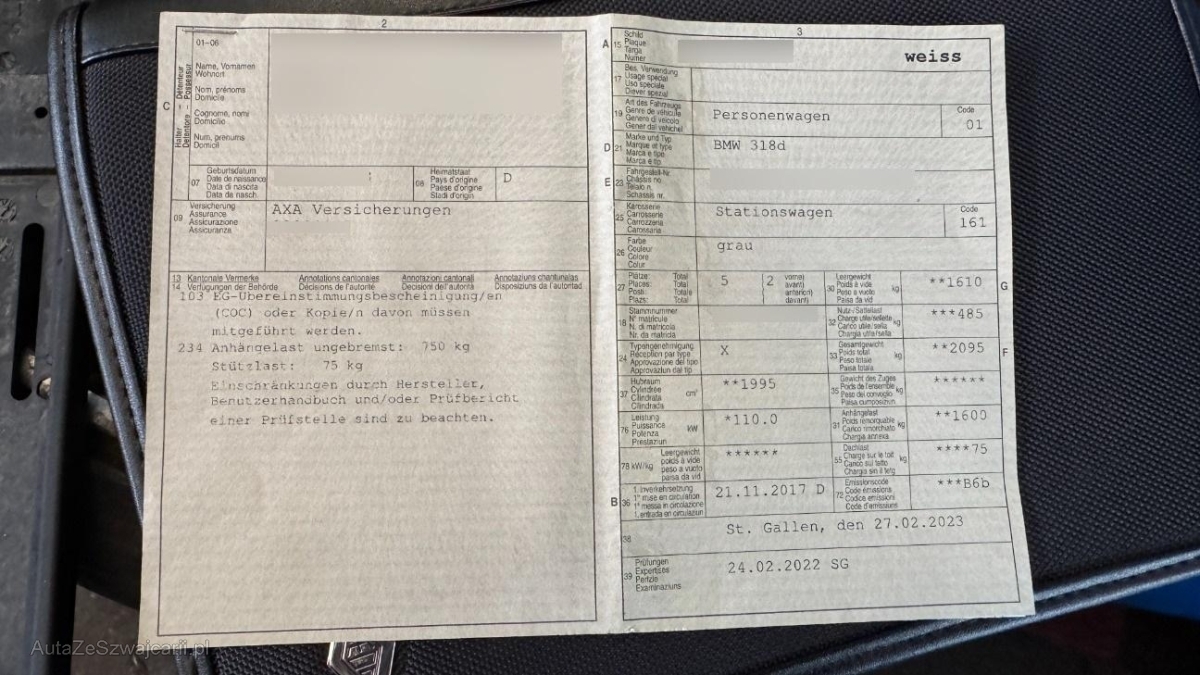 2
01-06
Name, Vornamen
Wohnort
Nom, prénoms
Domicile
Cognome, nomi
Domicilio
Num, prenums
Domicil
C
Halter – Détenteur
Detentore – Possessur
07
Geburtsdatum
Date de naissance
Data di nascita
Data da nasch.
08
Heimatstaat
Pays d'origine
Paese d'origine
Stadi d'origin
D
09
Versicherung
Assurance
Assicurazione
Assicuranza
AXA Versicherungen
13 Kantonale Vermerke Annotations cantonales Annotazioni cantonali Annotaziuns chantunalas
14 Verfügungen der Behörde Décisions de l'autorité Decisioni dell'autorità Disposiziuns da l'autoritad
103 EG-Übereinstimmungsbescheinigung/en
(COC) oder Kopie/n davon müssen
mitgeführt werden.
234 Anhängelast ungebremst: 750 kg
Stützlast: 75 kg
Einschränkungen durch Hersteller,
Benutzerhandbuch und/oder Prüfbericht
einer Prüfstelle sind zu beachten.
3
A 15
Schild
Plaque
Targa
Numer
weiss
17
Bes. Verwendung
Usage spécial
Uso speciale
Diever spezial
19
Art des Fahrzeugs
Genre de véhicule
Genere di veicolo
Gener dal vehichel
Personenwagen
Code
01
D 21
Marke und Typ
Marque et type
Marca e tipo
Marca e tip
BMW 318d
E 23
Fahrgestell-Nr.
Châssis no
Telaio n.
Schassis nr.
25
Karosserie
Carrosserie
Carrozzeria
Carossaria
Stationswagen
Code
161
26
Farbe
Couleur
Colore
Colur
grau
27
Plätze: Total
Places: Total
Posti: Totale
Plazs: Total
5
2
vorne)
avant)
anteriori)
davant)
30
Leergewicht
Poids à vide
Peso a vuoto
Paisa da vid
kg
**1610
G
18
Stammnummer
N° matricule
N. di matricola
Nr. da matricla
32
Nutz-/Sattellast
Charge utile/sellette
Carico utile/sella
Chargia utila/sella
kg
***485
24
Typengenehmigung
Réception par type
Approvazione del tipo
Approvaziun dal tip
X
33
Gesamtgewicht
Poids total
Peso totale
Paisa totala
kg
**2095
F
37
Hubraum
Cylindrée
Cilindrata
Cilindrada
cm³
**1995
35
Gewicht des Zuges
Poids de l'ensemble
Peso del convoglio
Paisa cumposiziun
kg
******
76
Leistung
Puissance
Potenza
Prestaziun
kW
*110.0
31
Anhängelast
Poids remorquable
Carico rimorchiato
Chargia annexa
kg
**1600
78 kW/kg
Leergewicht
poids à vide
peso a vuoto
paisa da vid
******
55
Dachlast
Charge sur le toit
Carico sul tetto
Chargia sin il tetg
kg
****75
B 36
1. Inverkehrsetzung
1re mise en circulation
1a messa in circolazione
1. entrada en circulaziun
21.11.2017 D
72
Emissionscode
Code émissions
Codice emissioni
Code d'emissiuns
***B6b
38
St. Gallen, den 27.02.2023
39
Prüfungen
Expertises
Perizie
Examinaziuns
24.02.2022 SG
AutaZeSzwajcarii.pl